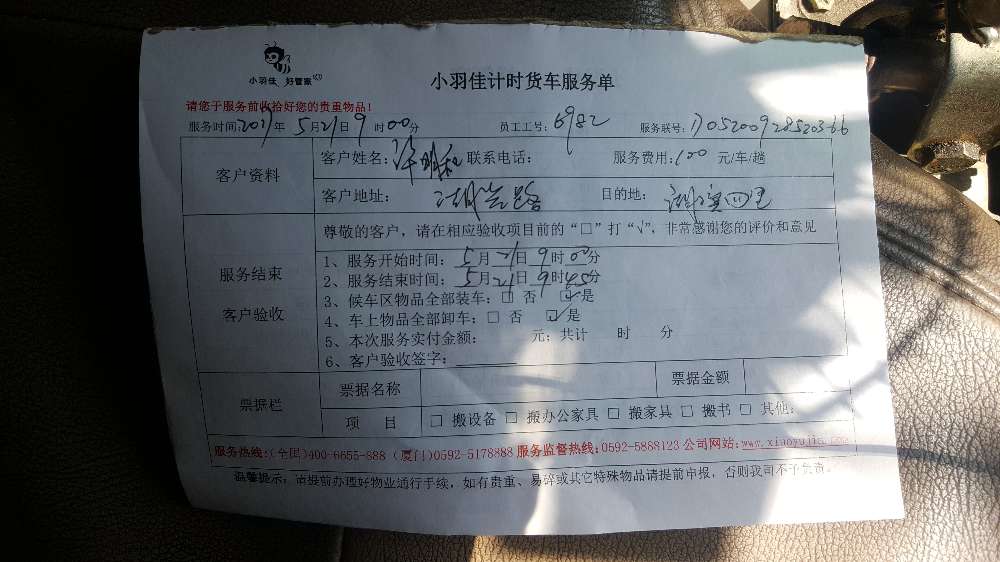 小羽佳 好管家
小羽佳计时货车服务单
请您于服务前收拾好您的贵重物品!
服务时间:2017年 5月21日9时00分 员工工号:6982 服务联号:
客户资料
客户姓名: 联系电话: 服务费用:100 元/车/趟
客户地址: 目的地: 四里
服务结束
客户验收
尊敬的客户,请在相应验收项目前的“□”打“√”,非常感谢您的评价和意见
1、服务开始时间: 5月21日9时00分
2、服务结束时间: 5月21日9时45分
3、候车区物品全部装车:□ 否 ☑是
4、车上物品全部卸车:□ 否 ☑是
5、本次服务实付金额: 元;共计 时 分
6、客户验收签字:
票据栏
票据名称 票据金额
项 目 □ 搬设备 □ 搬办公家具 □ 搬家具 □ 搬书 □ 其他:
服务热线:(全国)400-6655-888 (厦门)0592-5178888 服务监督热线:0592-5888123 公司网站:www.xiaoyujia.com
温馨提示:请提前办理好物业通行手续,如有贵重、易碎或其它特殊物品请提前申报,否则我司不予负责。